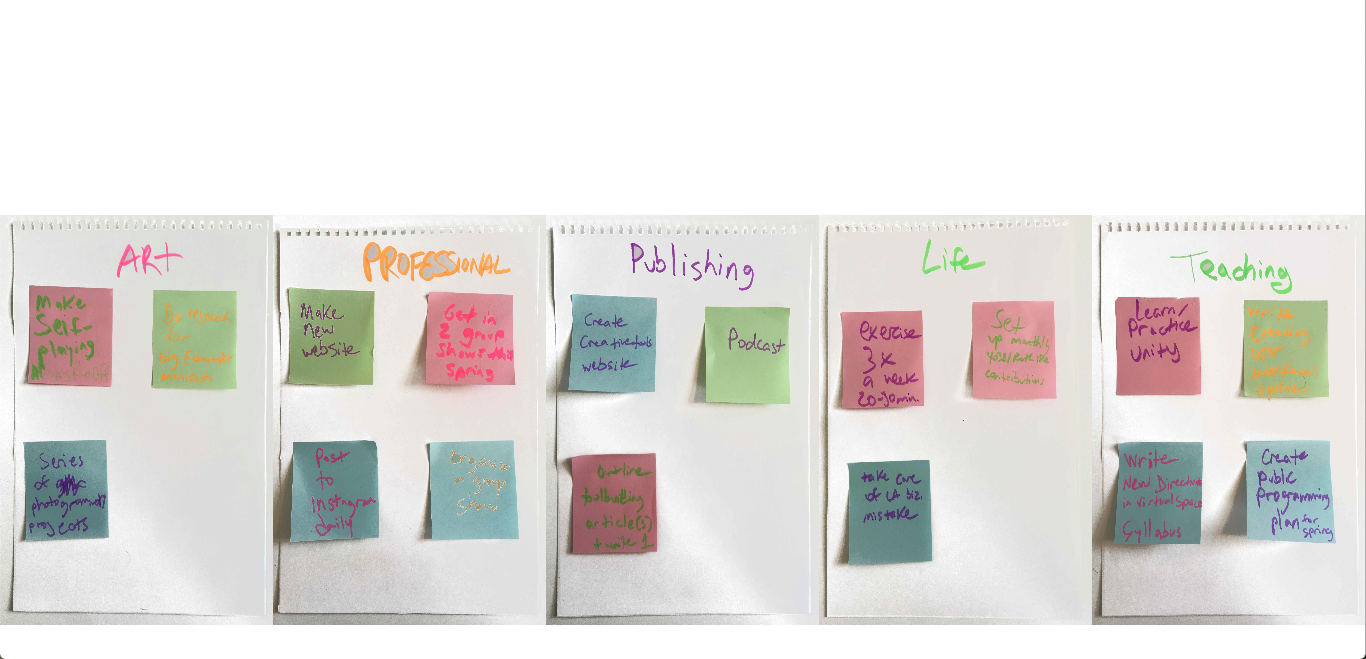 ART
Make
Self-
playing
for
big
Series
of
photogrammetry
projects
PROFESSIONAL
Make
new
website
Get in
2 group
shows this
Spring
Post
to
Instagram
daily
group
Publishing
Create
Creativetools
website
Podcast
Outline
toolbuilding
article(s)
+ write 1
Life
exercise
3x
a week
20-30min
Set
up monthly
contributions
take care
of CA biz
mistake
Teaching
Learn/
Practice
Unity
User
Write
New Directions
in virtual Space
Syllabus
Create
public
programming
plan for
spring